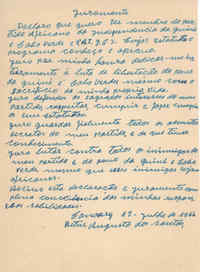 Juramento
Declaro que quero ser membro do Par-
tido Africano da Independencia da Guiné
e Cabo Verde (PAIGC) cujos estatutos
programa conheço e aprovo.
Juro pela minha honra dedicar-me
à luta de libertação do povo
da Guiné e Cabo Verde mesmo com o
sacrifício da minha própria vida.
Juro defender os sagrados interesses do meu
Partido respeitar, cumprir e fazer cumprir
os seus estatutos.
Juro guardar fielmente todos os
secretos do meu Partido e de que tiver
conhecimento.
Juro lutar contra todos os inimigos do
meu Partido e do povo da Guiné e de Cabo
Verde mesmo que esses inimigos sejam
Africanos.
Assino esta declaração e juramento com
plena consciência das minhas respon-
sabilidades.
Conakry 17 - Julho de 196
Augusto dos Santos